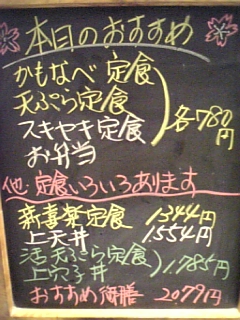 本日のおすすめ
かもなべ定食
天ぷら定食
スキヤキ定食
お弁当
各780円
他定食いろいろあります
新喜楽定食 1344円
上天丼 1,554円
活天ぷら定食
上穴子丼
1,785円
おすすめ御膳 2079円